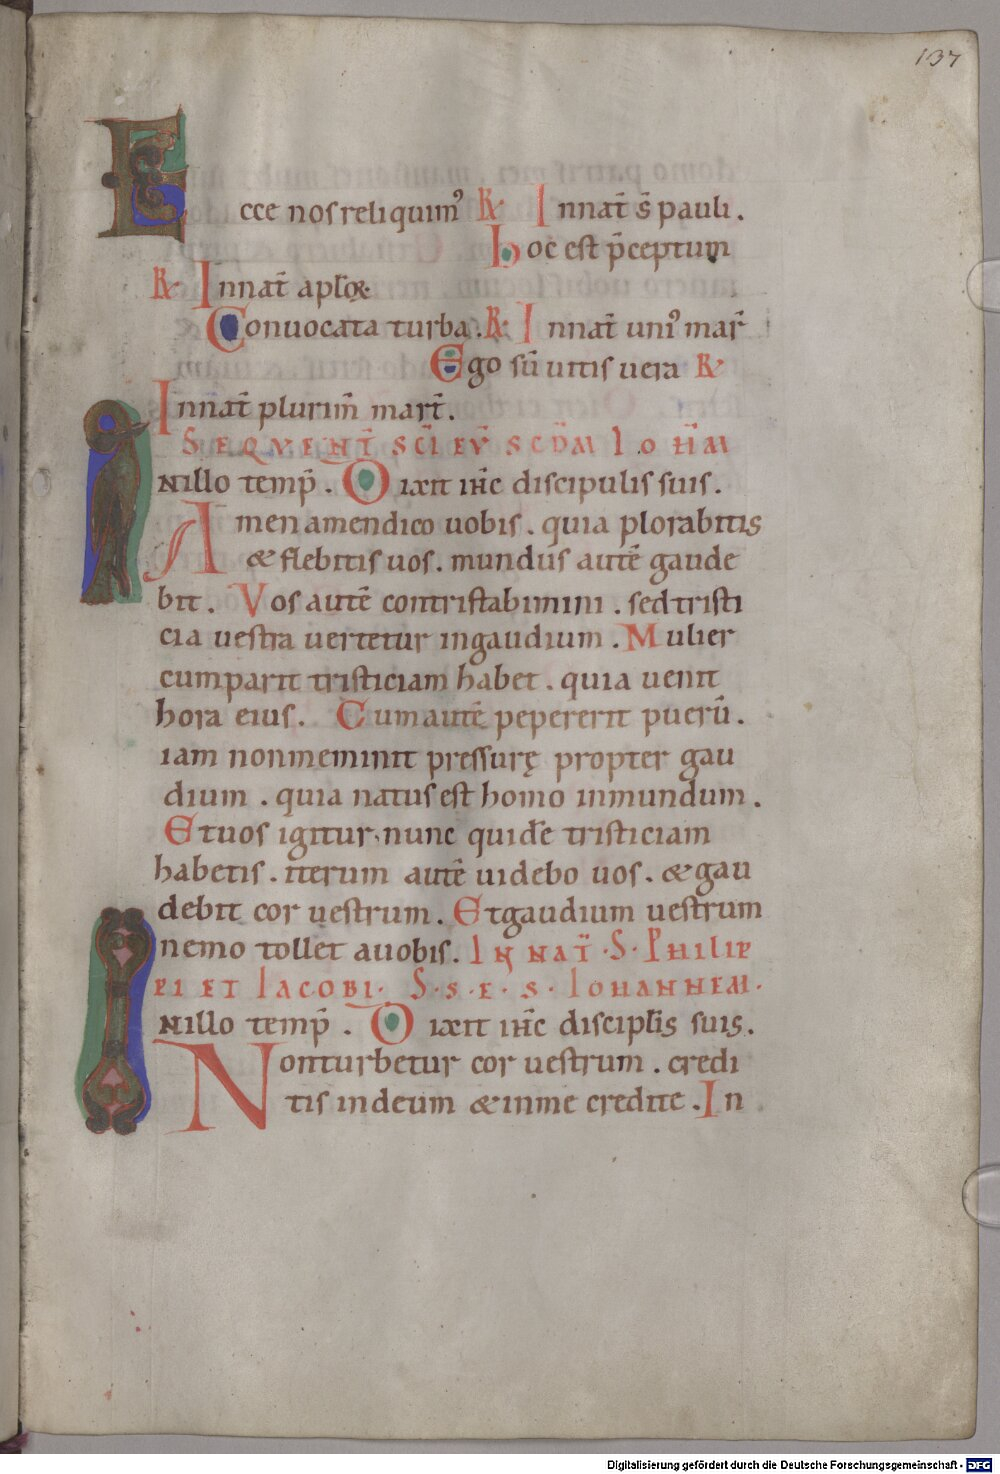 137
Ecce nos reliquim⁹ R In nat̄ s̄ pauli.
Hoc est p̄ceptum
R In nat̄ aplōꝝ
Conuocata turba. R In nat̄ uni⁹ mar̄
Ego sū uitis uera R
In nat̄ plurim̄ mart̄.
SEQVENT̄ SC̄I EV̄ SCD̄M IOH̄M
IN illo temp̄. Dixit ih̄c discipulis suis.
Amen amen dico uobis. quia plorabitis
& flebitis uos. mundus autē gaude
bit. Vos autē contristabimini. sed tristi
cia uestra uertetur in gaudium. Mulier
cum parit tristiciam habet. quia uenit
hora eius. Cum autē pepererit puerū.
iam non meminit pressurę propter gau
dium. quia natus est homo in mundum.
Et uos igitur nunc quidē tristiciam
habetis. iterum autē uidebo uos. & gau
debit cor uestrum. Et gaudium uestrum
nemo tollet a uobis. IN NAT̄ · S · PHILIP
PI ET IACOBI · S · S · E · S · IOHANNEM ·
IN illo temp̄. Dixit ih̄c discipl̄is suis.
Non turbetur cor uestrum. credi
tis in deum & in me credite. In
Digitalisierung gefördert durch die Deutsche Forschungsgemeinschaft - DFG